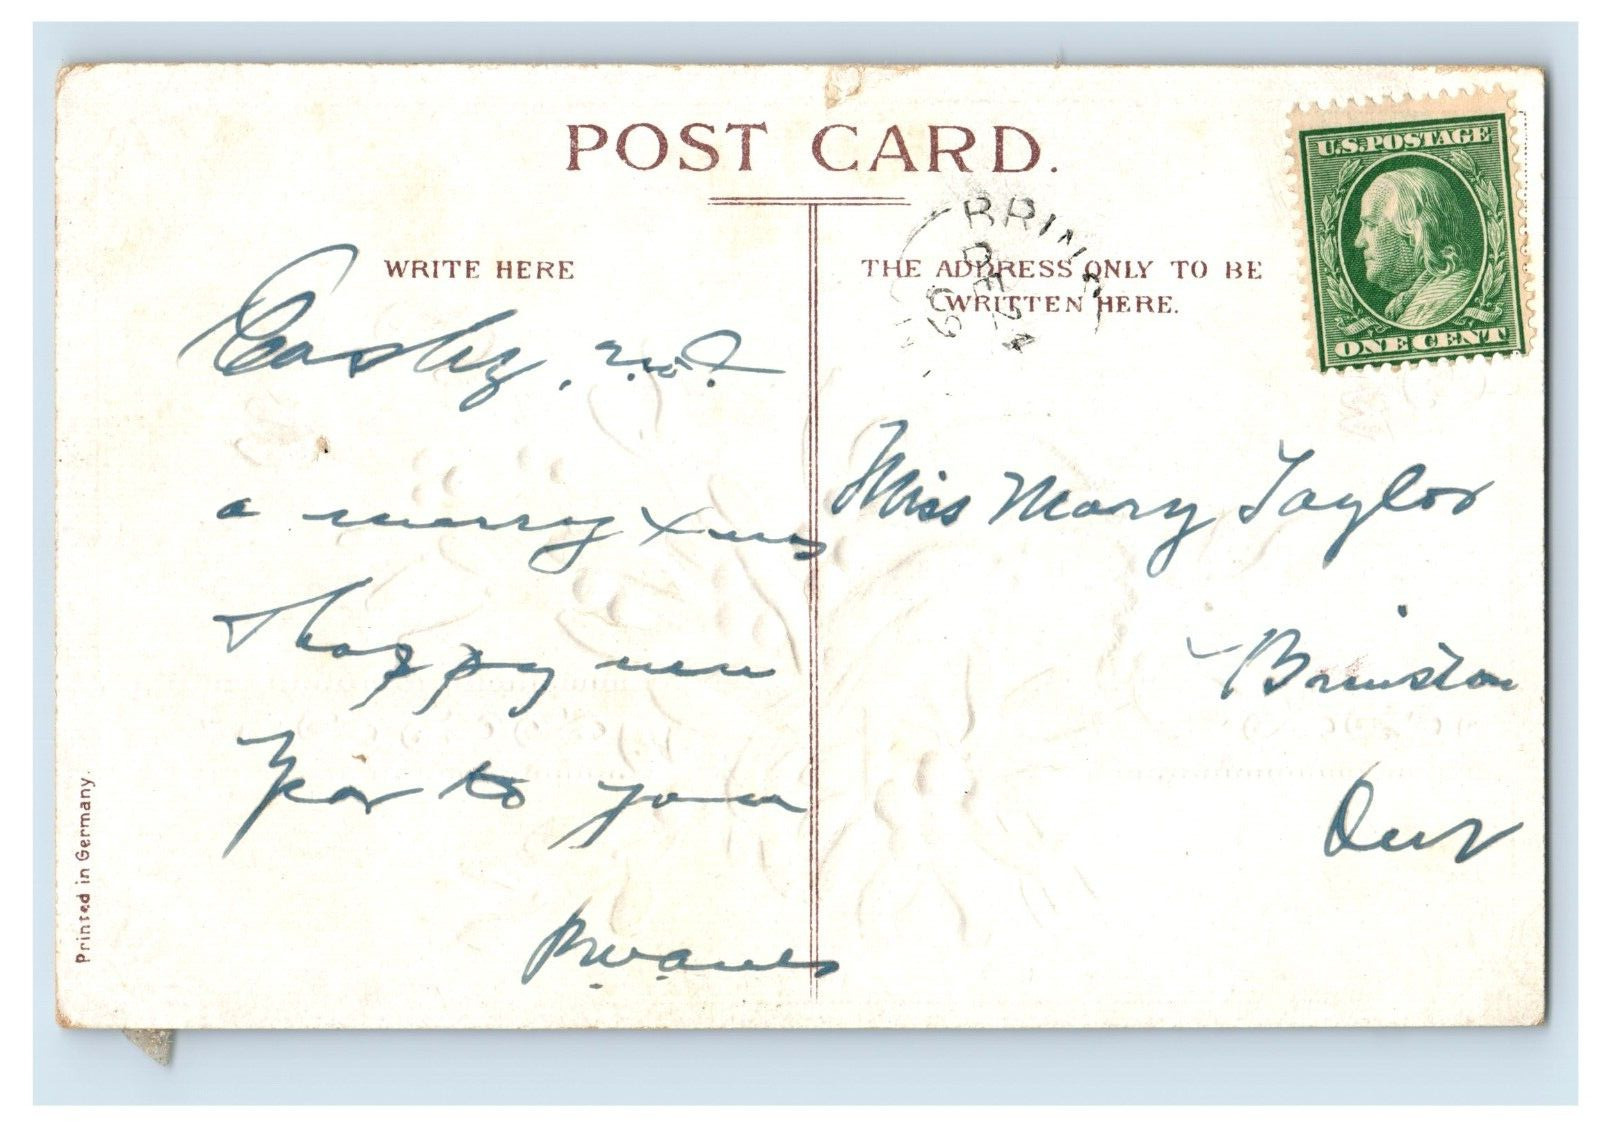 POST CARD.
WRITE HERE
THE ADDRESS ONLY TO BE
WRITTEN HERE.
U.S. POSTAGE
ONE CENT
BRINS
DE 24
09
Easby, N.D.
a merry Xmas
& happy new
Year to you
Miss Mary Taylor
Brinston
Ont
Printed in Germany.